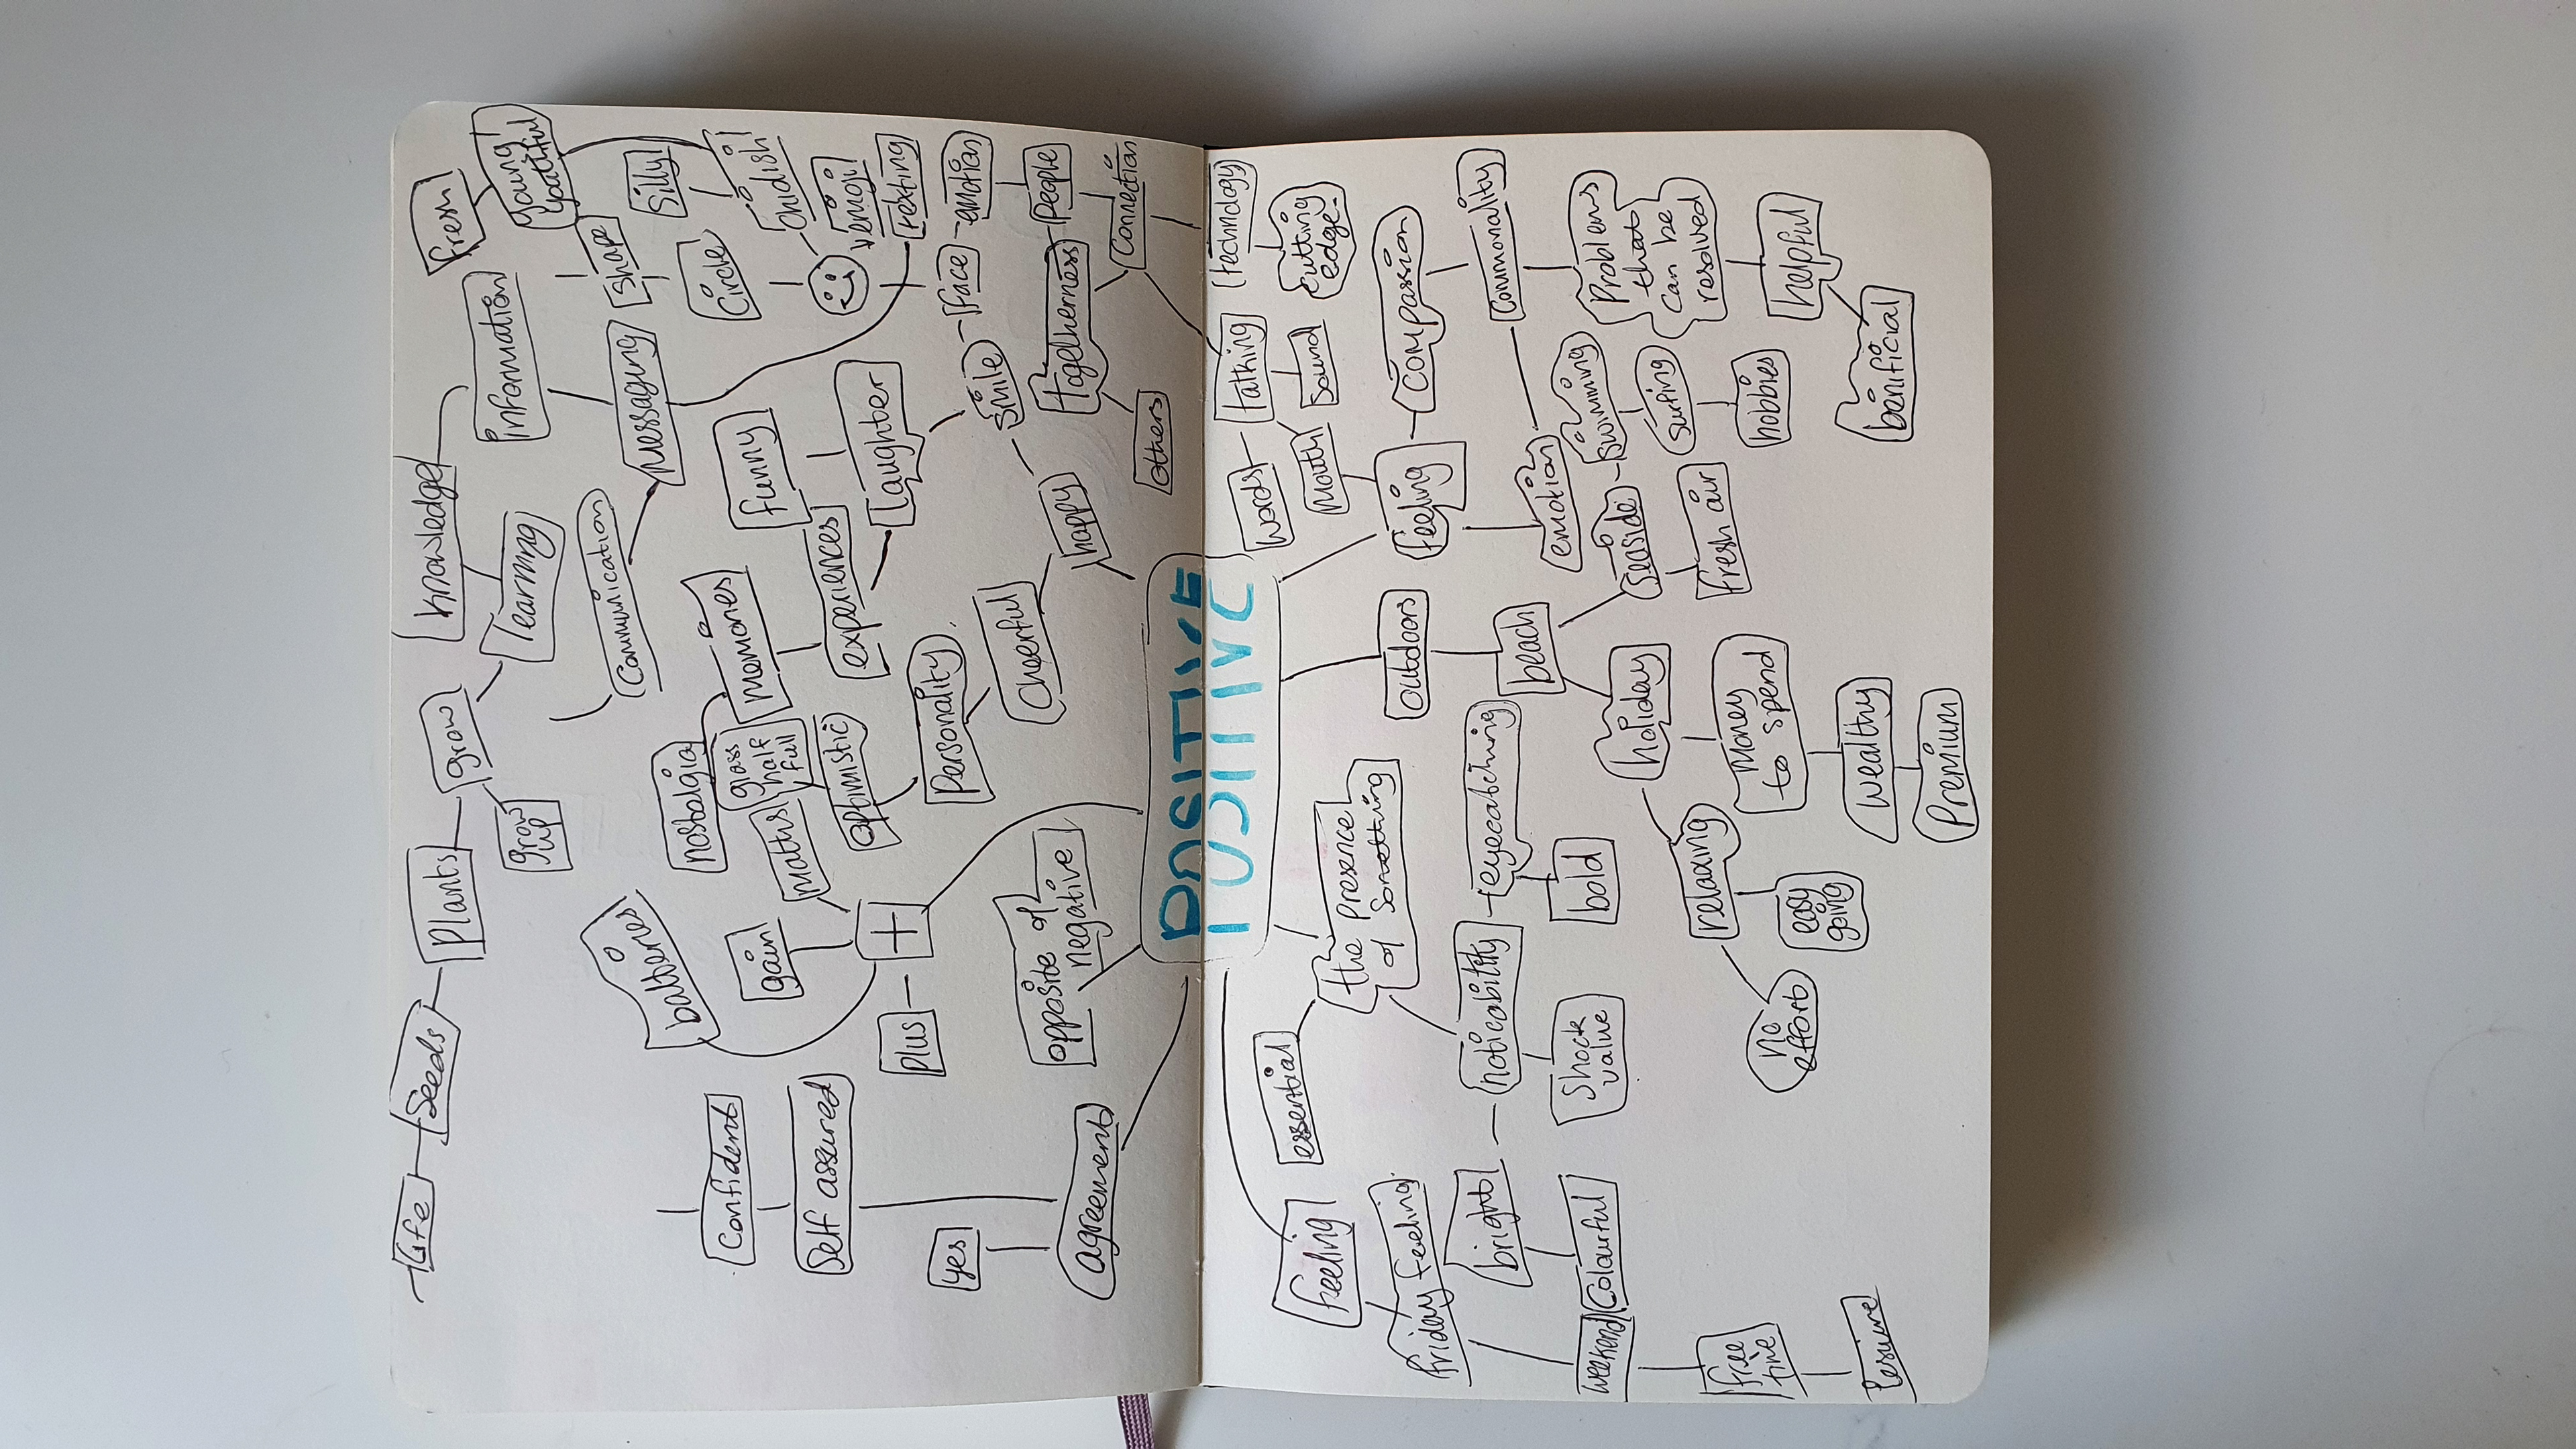 Life
Seeds
Plants
knowledge
fresh
grow
grow
up
learning
Information
young
youthful
Communication
messaging
Shape
Silly
batteries
nostalgia
memories
funny
Circle
childish
Confident
gain
glass
half
full
maths
experiences
laughter
emoji
Self assured
+
optimistic
texting
plus
Personality
smile
face
emotion
yes
Cheerful
happy
togetherness
People
opposite of
negative
agreement
others
Connection
POSITIVE
words
talking
technology
essential
mouth
sound
cutting
edge
feeling
the presence
of something
outdoors
feeling
compassion
friday feeling
bright
noticability
eyecatching
beach
emotion
communality
weekend
Colourful
Shock
value
bold
holiday
Seaside
swimming
Problems
that
can be
resolved
surfing
relaxing
fresh air
hobbies
helpful
free
time
no
effort
easy
going
money
to spend
wealthy
benificial
Lesiure
Premium